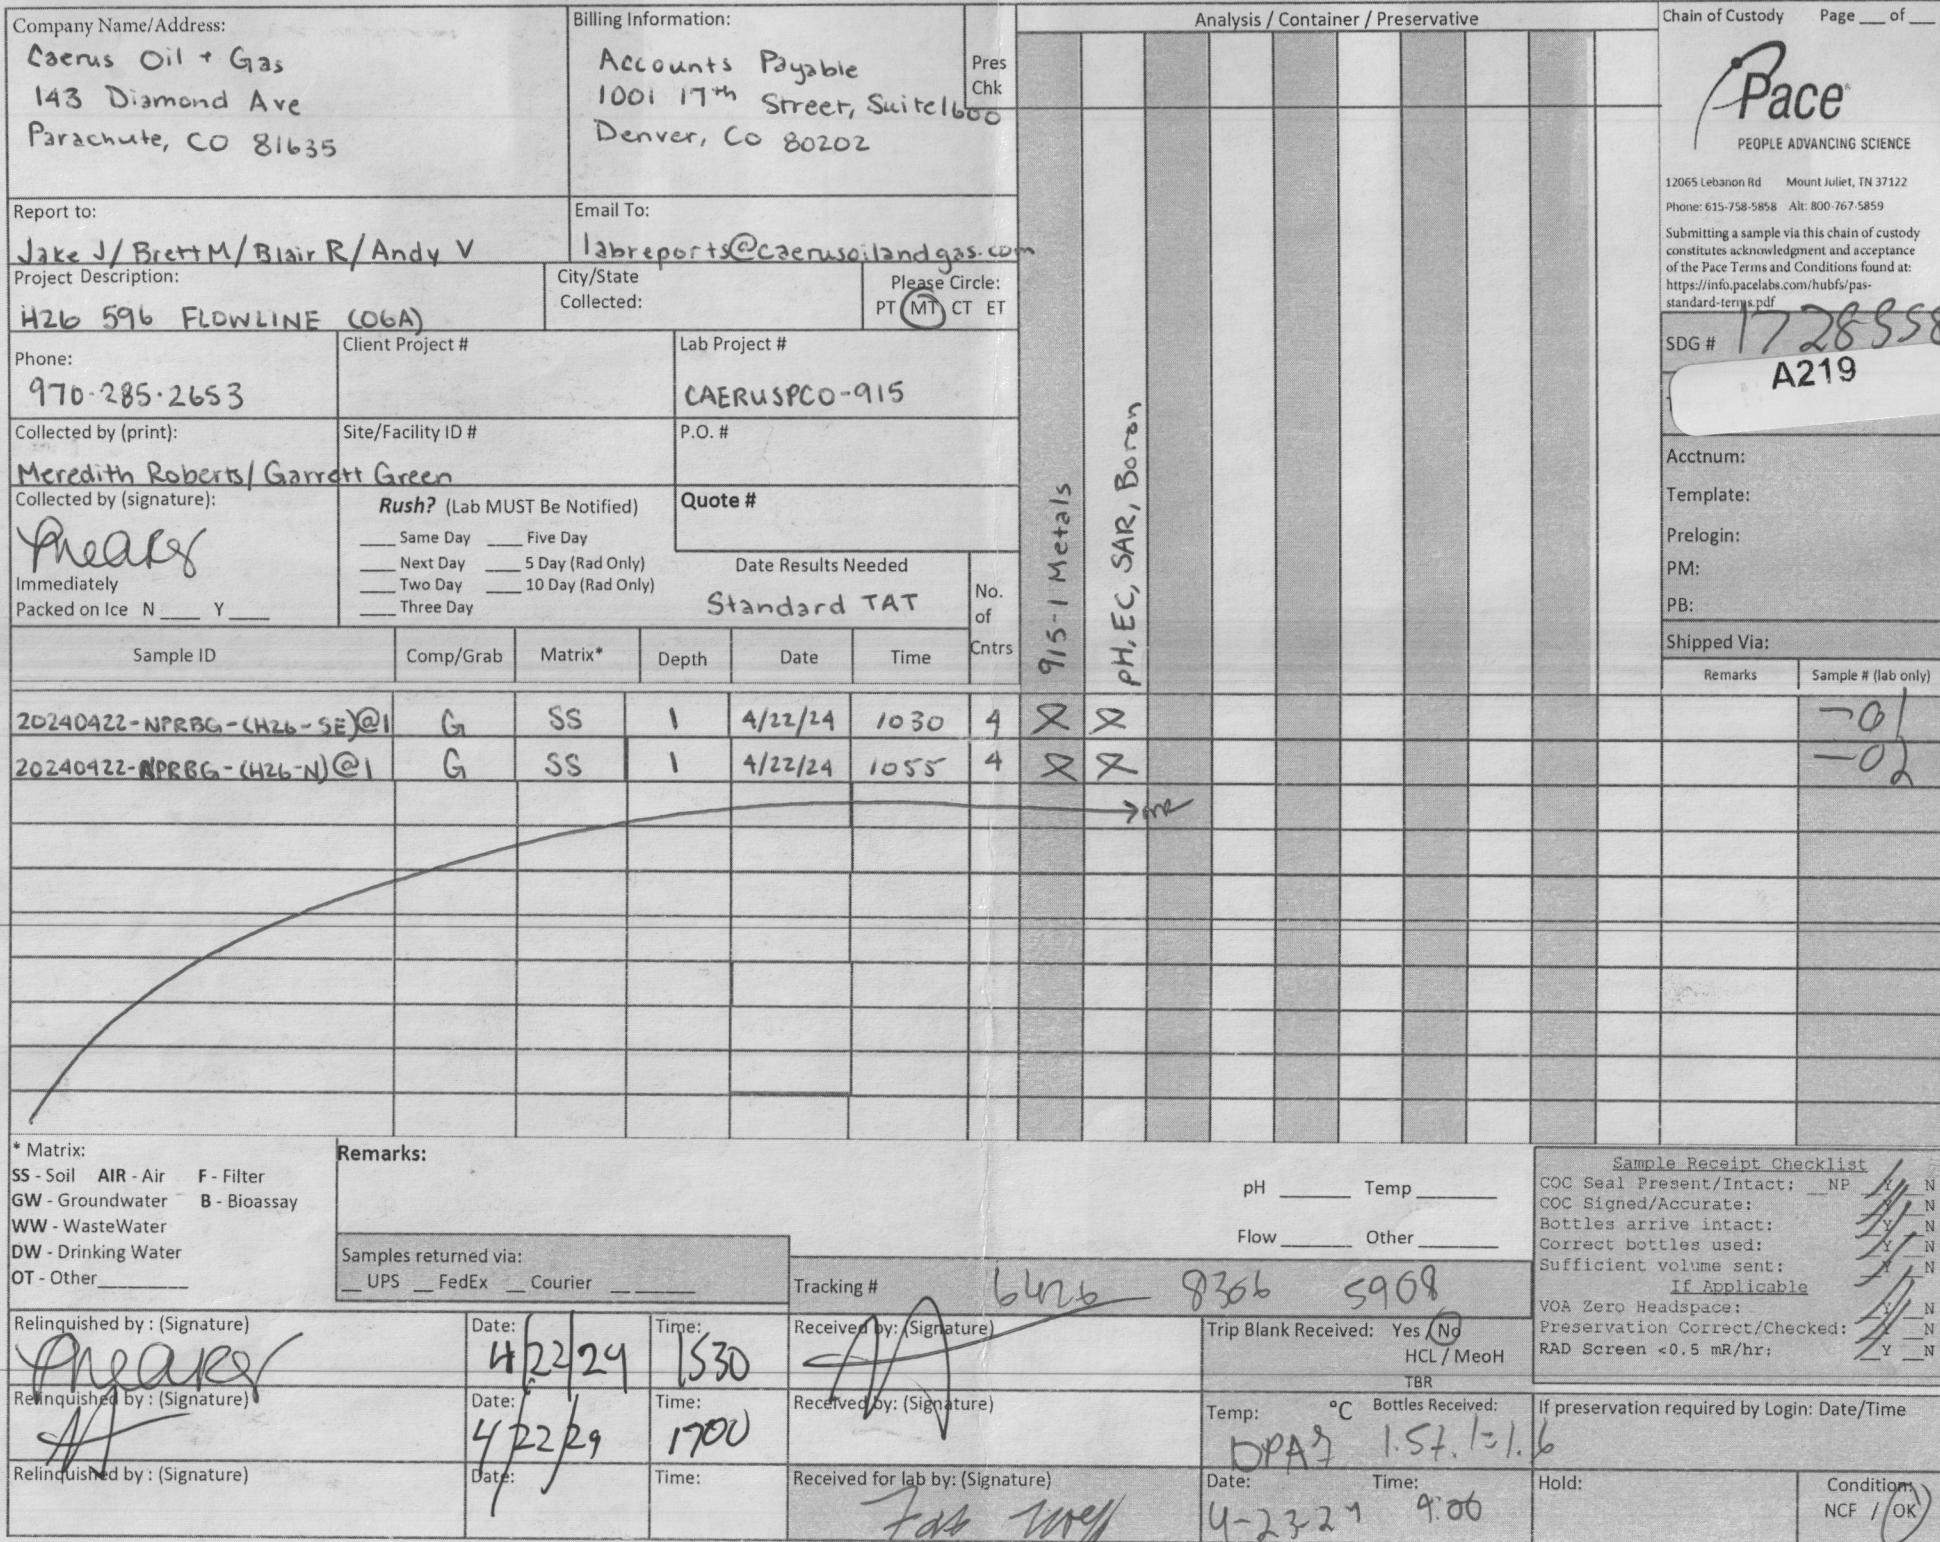 Company Name/Address:
Caerus Oil + Gas
143 Diamond Ave
Parachute, CO 81635
Billing Information:
Accounts Payable
1001 17th Street, Suite 1600
Denver, CO 80202
Pres
Chk
Analysis / Container / Preservative
Chain of Custody Page ___ of ___
Pace
PEOPLE ADVANCING SCIENCE
12065 Lebanon Rd Mount Juliet, TN 37122
Phone: 615-758-5858 Alt: 800-767-5859
Submitting a sample via this chain of custody
constitutes acknowledgment and acceptance
of the Pace Terms and Conditions found at:
https://info.pacelabs.com/hubfs/pas-
standard-terms.pdf
Report to:
Jake J/ Brett M/ Blair R/ Andy V
Email To:
labreports@caerusoilandgas.com
Project Description:
H26 596 FLOWLINE (O6A)
City/State
Collected:
Please Circle:
PT MT CT ET
SDG #
A219
Phone:
970-285-2653
Client Project #
Lab Project #
CAERUSPCO-915
Collected by (print):
Meredith Roberts/ Garrett Green
Site/Facility ID #
P.O. #
Acctnum:
Template:
Prelogin:
PM:
PB:
Collected by (signature):
Immediately
Packed on Ice N ____ Y ____
Rush? (Lab MUST Be Notified)
____ Same Day ____ Five Day
____ Next Day ____ 5 Day (Rad Only)
____ Two Day ____ 10 Day (Rad Only)
____ Three Day
Quote #
Date Results Needed
Standard TAT
No.
of
Cntrs
915-1 Metals
pH, EC, SAR, Boron
Shipped Via:
Sample ID Comp/Grab Matrix* Depth Date Time Remarks Sample # (lab only)
20240422-NPRBG-(H26-SE)@1 G SS 1 4/22/24 1030 4 X X -01
20240422-NPRBG-(H26-N)@1 G SS 1 4/22/24 1055 4 X X -02
* Matrix:
SS - Soil AIR - Air F - Filter
GW - Groundwater B - Bioassay
WW - WasteWater
DW - Drinking Water
OT - Other_________
Remarks:
pH ______ Temp ______
Flow ______ Other ______
Samples returned via:
__ UPS __ FedEx __ Courier ______
Tracking # 6426 8366 5908
Sample Receipt Checklist
COC Seal Present/Intact: __NP __Y __N
COC Signed/Accurate: __Y __N
Bottles arrive intact: __Y __N
Correct bottles used: __Y __N
Sufficient volume sent: __Y __N
If Applicable
VOA Zero Headspace: __Y __N
Preservation Correct/Checked: __Y __N
RAD Screen <0.5 mR/hr: __Y __N
Relinquished by : (Signature)
Date: 4/22/24
Time: 1530
Received by: (Signature)
Trip Blank Received: Yes / No
HCL / MeoH
TBR
Relinquished by : (Signature)
Date: 4/22/24
Time: 1700
Received by: (Signature)
Temp: °C Bottles Received:
If preservation required by Login: Date/Time
Relinquished by : (Signature)
Date:
Time:
Received for lab by: (Signature)
Date: 4-23-24
Time: 9:00
Hold:
Condition:
NCF / OK